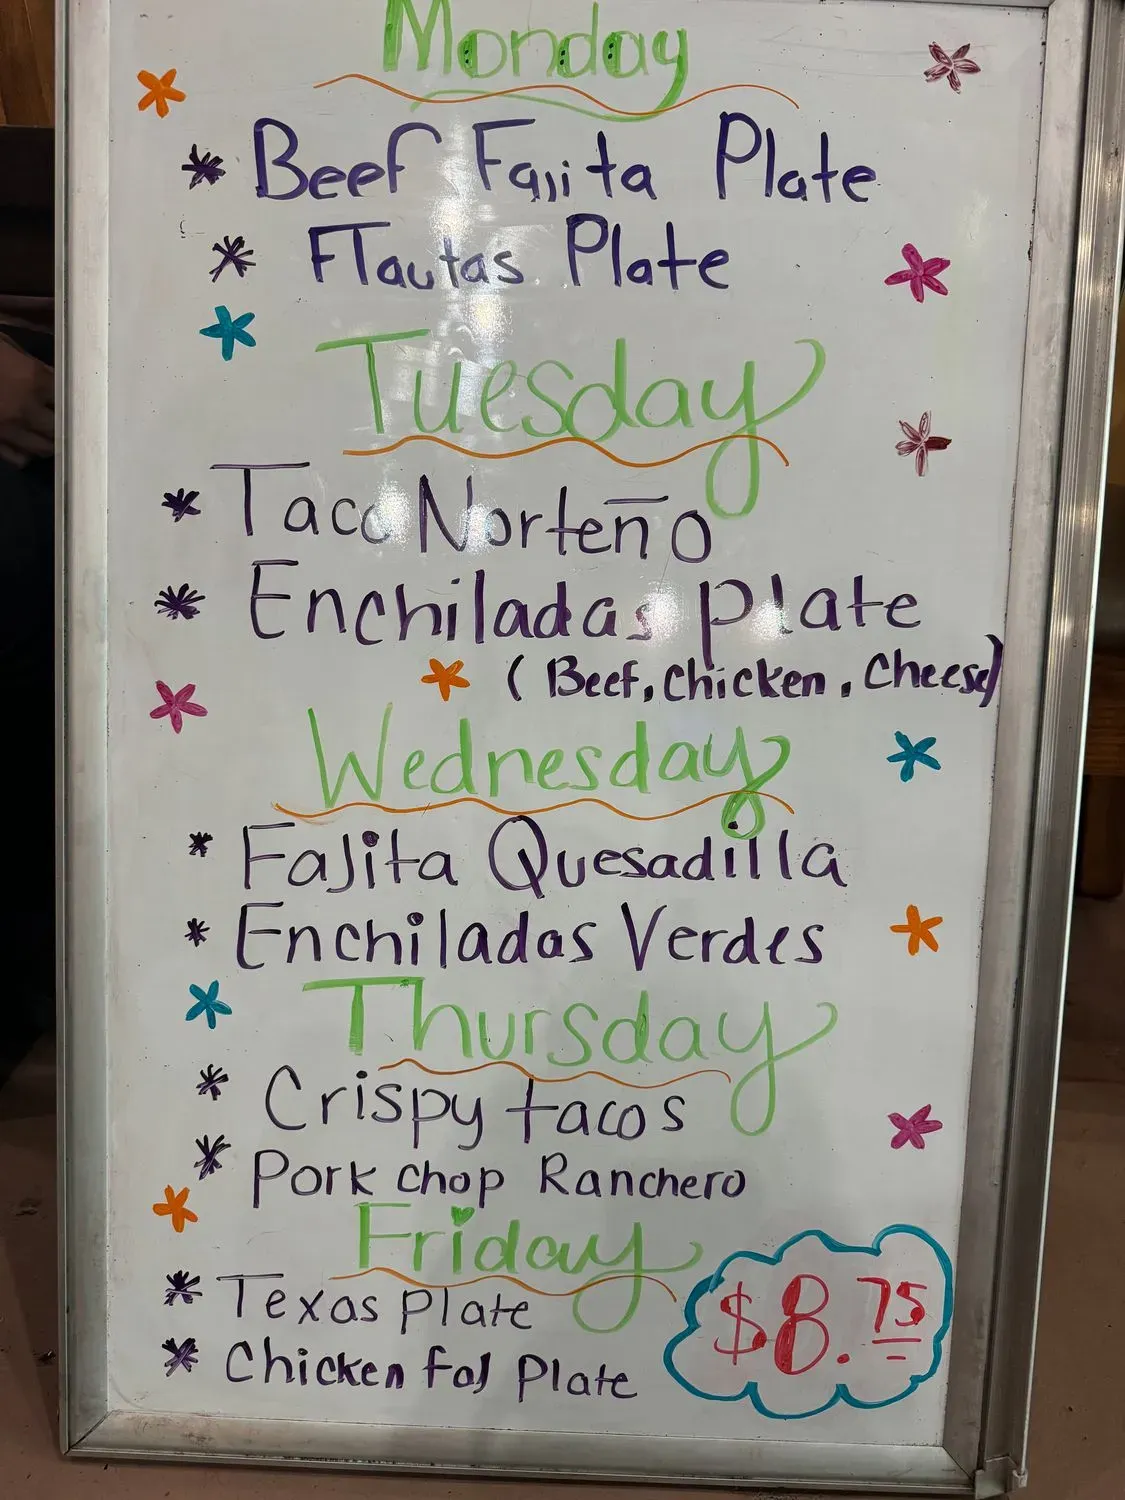 Monday
* Beef Fajita Plate
* Flautas Plate
Tuesday
* Taco Norteño
* Enchiladas Plate
(Beef, Chicken, Cheese)
Wednesday
* Fajita Quesadilla
* Enchiladas Verdes
Thursday
* Crispy tacos
* Pork chop Ranchero
Friday
* Texas Plate
* Chicken faj Plate
$8.75